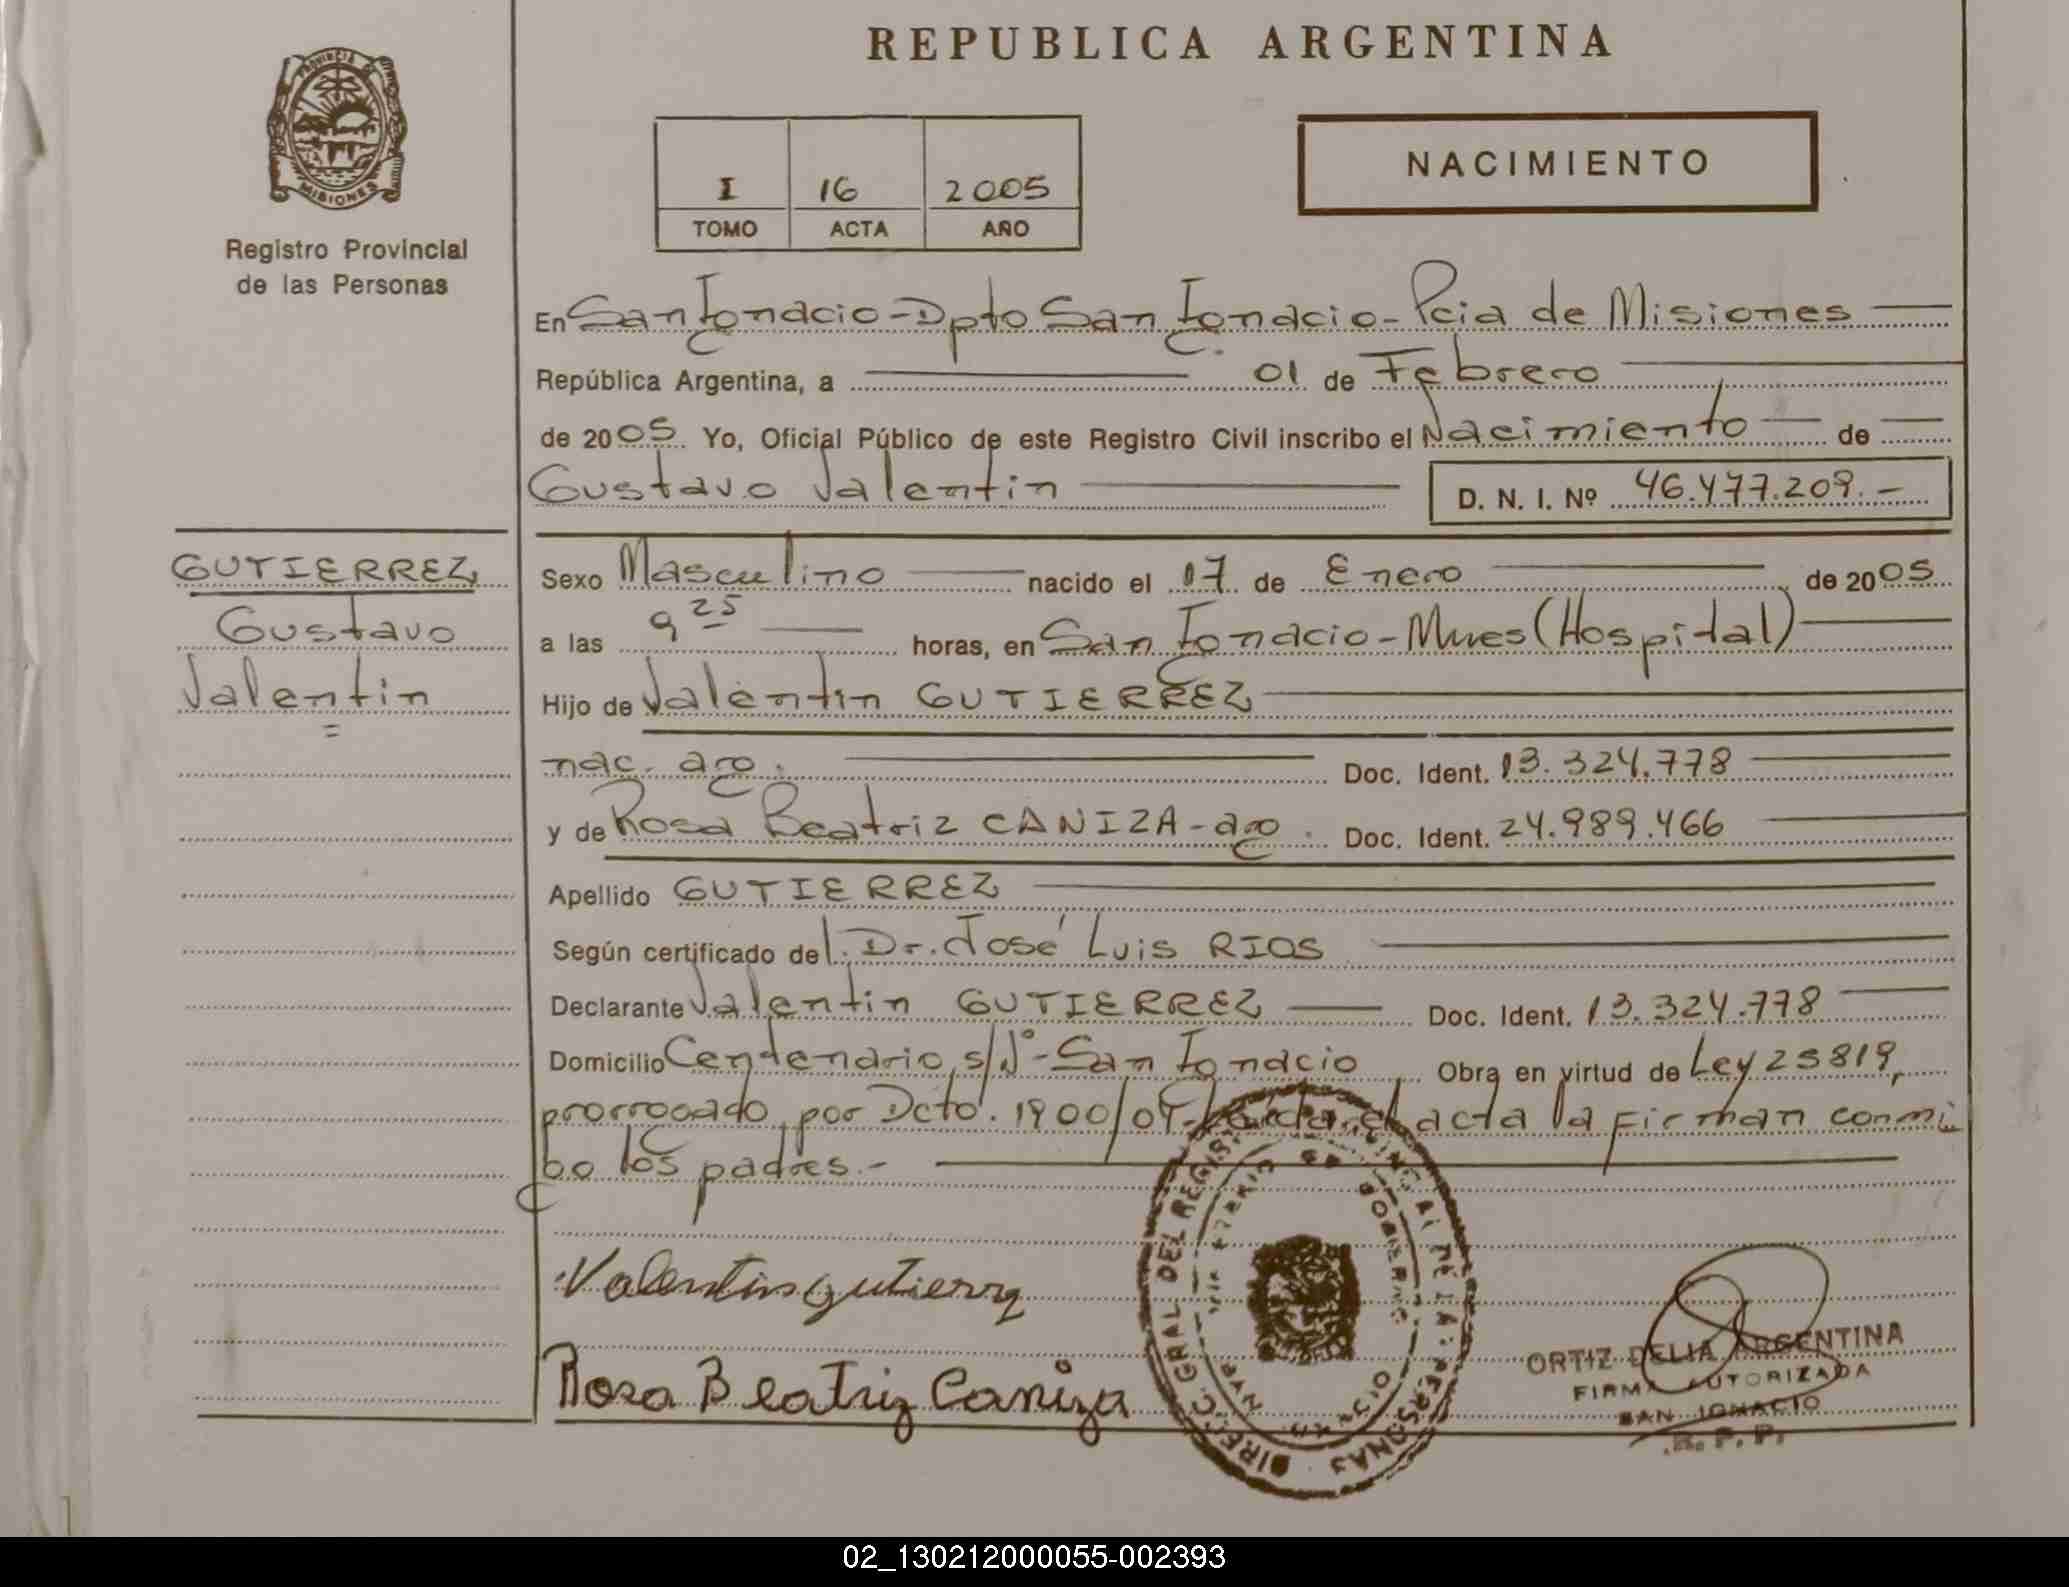 REPUBLICA ARGENTINA
PROVINCIA DE
MISIONES
Registro Provincial
de las Personas
I 16 2005
TOMO ACTA AÑO
NACIMIENTO
En San Ignacio - Dpto San Ignacio - Pcia de Misiones
República Argentina, a 01 de Febrero
de 2005 Yo, Oficial Público de este Registro Civil inscribo el Nacimiento de
Gustavo Valentin D. N. I. Nº 46.477.209.-
GUTIERREZ
Gustavo
Valentin
Sexo Masculino nacido el 17 de Enero de 2005
a las 9 25 horas, en San Ignacio - Mnes (Hospital)
Hijo de Valentin GUTIERREZ
nac. arg. Doc. Ident. 13.324.778
y de Rosa Beatriz CANIZA - arg. Doc. Ident. 24.989.466
Apellido GUTIERREZ
Según certificado del Dr. José Luis RIOS
Declarante Valentin GUTIERREZ Doc. Ident. 13.324.778
Domicilio Centenario s/Nº - San Ignacio Obra en virtud de Ley 25819,
prorrogado por Dcto. 1900/04. el acta la firman conmi
go los padres.-
Valentin gutierrez
Rosa Beatriz Caniza
DIREC. GRAL DEL REGIST. PROVINCIAL DE LAS PERSONAS
ORTIZ DELIA ARGENTINA
FIRMA AUTORIZADA
SAN IGNACIO
R. P. P.
02_130212000055-002393